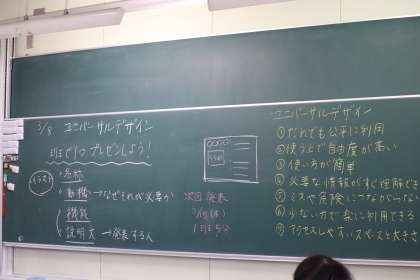 3/8 ユニバーサルデザイン
班で1つプレゼンしよう!
イラスト
・名称
・動機→なぜそれが必要か
・機能
・説明文→発表する人
次回 発表
1班5分
ユニバーサルデザイン
①だれでも公平に利用
②使う上で自由度が高い
③使い方が簡単
④必要な情報がすぐ理解でき
⑤ミスや危険につながらない
⑥少ない力で楽に利用できる
⑦アクセスしやすいスペースと大きさ